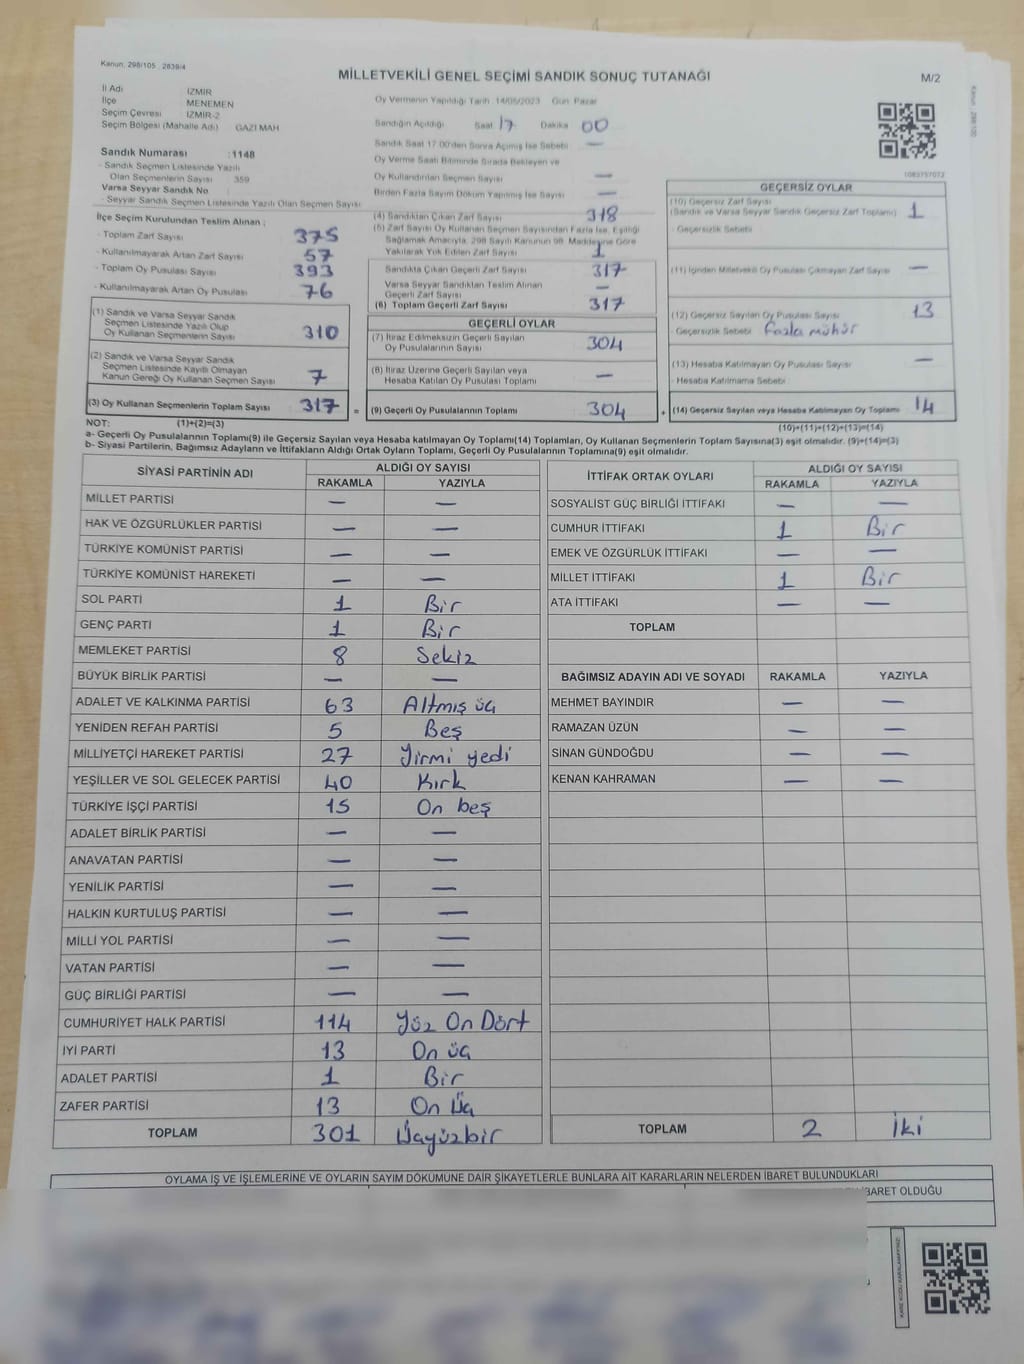 Kanun: 298/105 , 2839/4
MİLLETVEKİLİ GENEL SEÇİMİ SANDIK SONUÇ TUTANAĞI
M/2
İl Adı IZMIR
İlçe MENEMEN
Seçim Çevresi IZMIR-2
Seçim Bölgesi (Mahalle Adı) GAZI MAH
Sandık Numarası : 1148
- Sandık Seçmen Listesinde Yazılı
Olan Seçmenlerin Sayısı : 359
Varsa Seyyar Sandık No
- Seyyar Sandık Seçmen Listesinde Yazılı Olan Seçmen Sayısı
Oy Vermenin Yapıldığı Tarih 14/05/2023 Gün: Pazar
Sandığın Açıldığı Saat 17 Dakika 00
Sandık Saat 17.00'den Sonra Açılmış İse Sebebi —
Oy Verme Saati Bitiminde Sırada Bekleyen ve
Oy Kullandırılan Seçmen Sayısı —
Birden Fazla Sayım Döküm Yapılmış İse Sayısı —
1083757072
İlçe Seçim Kurulundan Teslim Alınan :
- Toplam Zarf Sayısı 375
- Kullanılmayarak Artan Zarf Sayısı 57
- Toplam Oy Pusulası Sayısı 393
- Kullanılmayarak Artan Oy Pusulası 76
(1) Sandık ve Varsa Seyyar Sandık
Seçmen Listesinde Yazılı Olup
Oy Kullanan Seçmenlerin Sayısı 310
(2) Sandık ve Varsa Seyyar Sandık
Seçmen Listesinde Kayıtlı Olmayan
Kanun Gereği Oy Kullanan Seçmen Sayısı 7
(3) Oy Kullanan Seçmenlerin Toplam Sayısı 317 =
(4) Sandıktan Çıkan Zarf Sayısı 318
(5) Zarf Sayısı Oy Kullanan Seçmen Sayısından Fazla İse, Eşitliği
Sağlamak Amacıyla, 298 Sayılı Kanunun 98. Maddesine Göre
Yakılarak Yok Edilen Zarf Sayısı 1
Sandıkta Çıkan Geçerli Zarf Sayısı 317
Varsa Seyyar Sandıktan Teslim Alınan
Geçerli Zarf Sayısı —
(6) Toplam Geçerli Zarf Sayısı 317
GEÇERLİ OYLAR
(7) İtiraz Edilmeksizin Geçerli Sayılan
Oy Pusulalarının Sayısı 304
(8) İtiraz Üzerine Geçerli Sayılan veya
Hesaba Katılan Oy Pusulası Toplamı —
(9) Geçerli Oy Pusulalarının Toplamı 304 +
GEÇERSİZ OYLAR
(10) Geçersiz Zarf Sayısı 1
(Sandık ve Varsa Seyyar Sandık Geçersiz Zarf Toplamı)
- Geçersizlik Sebebi
(11) İçinden Milletvekili Oy Pusulası Çıkmayan Zarf Sayısı —
(12) Geçersiz Sayılan Oy Pusulası Sayısı 13
- Geçersizlik Sebebi Fazla mühür
(13) Hesaba Katılmayan Oy Pusulası Sayısı —
- Hesaba Katılmama Sebebi
(14) Geçersiz Sayılan veya Hesaba Katılmayan Oy Toplamı 14
NOT: (1)+(2)=(3) (10)+(11)+(12)+(13)=(14)
a- Geçerli Oy Pusulalarının Toplamı(9) ile Geçersiz Sayılan veya Hesaba katılmayan Oy Toplamı(14) Toplamları, Oy Kullanan Seçmenlerin Toplam Sayısına(3) eşit olmalıdır. (9)+(14)=(3)
b- Siyasi Partilerin, Bağımsız Adayların ve İttifakların Aldığı Ortak Oyların Toplamı, Geçerli Oy Pusulalarının Toplamına(9) eşit olmalıdır.
SİYASİ PARTİNİN ADI ALDIĞI OY SAYISI
RAKAMLA YAZIYLA
MİLLET PARTİSİ — —
HAK VE ÖZGÜRLÜKLER PARTİSİ — —
TÜRKİYE KOMÜNİST PARTİSİ — —
TÜRKİYE KOMÜNİST HAREKETİ — —
SOL PARTİ 1 Bir
GENÇ PARTİ 1 Bir
MEMLEKET PARTİSİ 8 Sekiz
BÜYÜK BİRLİK PARTİSİ — —
ADALET VE KALKINMA PARTİSİ 63 Altmış üç
YENİDEN REFAH PARTİSİ 5 Beş
MİLLİYETÇİ HAREKET PARTİSİ 27 Yirmi yedi
YEŞİLLER VE SOL GELECEK PARTİSİ 40 Kırk
TÜRKİYE İŞÇİ PARTİSİ 15 On beş
ADALET BİRLİK PARTİSİ — —
ANAVATAN PARTİSİ — —
YENİLİK PARTİSİ — —
HALKIN KURTULUŞ PARTİSİ — —
MİLLİ YOL PARTİSİ — —
VATAN PARTİSİ — —
GÜÇ BİRLİĞİ PARTİSİ — —
CUMHURİYET HALK PARTİSİ 114 Yüz On Dört
İYİ PARTİ 13 On üç
ADALET PARTİSİ 1 Bir
ZAFER PARTİSİ 13 On Üç
TOPLAM 301 Üçyüzbir
İTTİFAK ORTAK OYLARI ALDIĞI OY SAYISI
RAKAMLA YAZIYLA
SOSYALİST GÜÇ BİRLİĞİ İTTİFAKI — —
CUMHUR İTTİFAKI 1 Bir
EMEK VE ÖZGÜRLÜK İTTİFAKI — —
MİLLET İTTİFAKI 1 Bir
ATA İTTİFAKI — —
TOPLAM
BAĞIMSIZ ADAYIN ADI VE SOYADI RAKAMLA YAZIYLA
MEHMET BAYINDIR — —
RAMAZAN ÜZÜN — —
SİNAN GÜNDOĞDU — —
KENAN KAHRAMAN — —
TOPLAM 2 İki
OYLAMA İŞ VE İŞLEMLERİNE VE OYLARIN SAYIM DÖKÜMÜNE DAİR ŞİKAYETLERLE BUNLARA AİT KARARLARIN NELERDEN İBARET BULUNDUKLARI
İBARET OLDUĞU